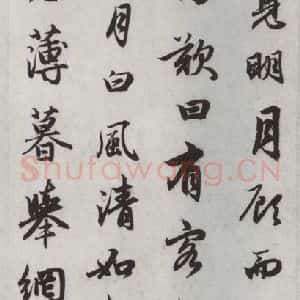 見明月顧而
歎曰有客
月白風清如
薄暮舉網
Shufawang.CN